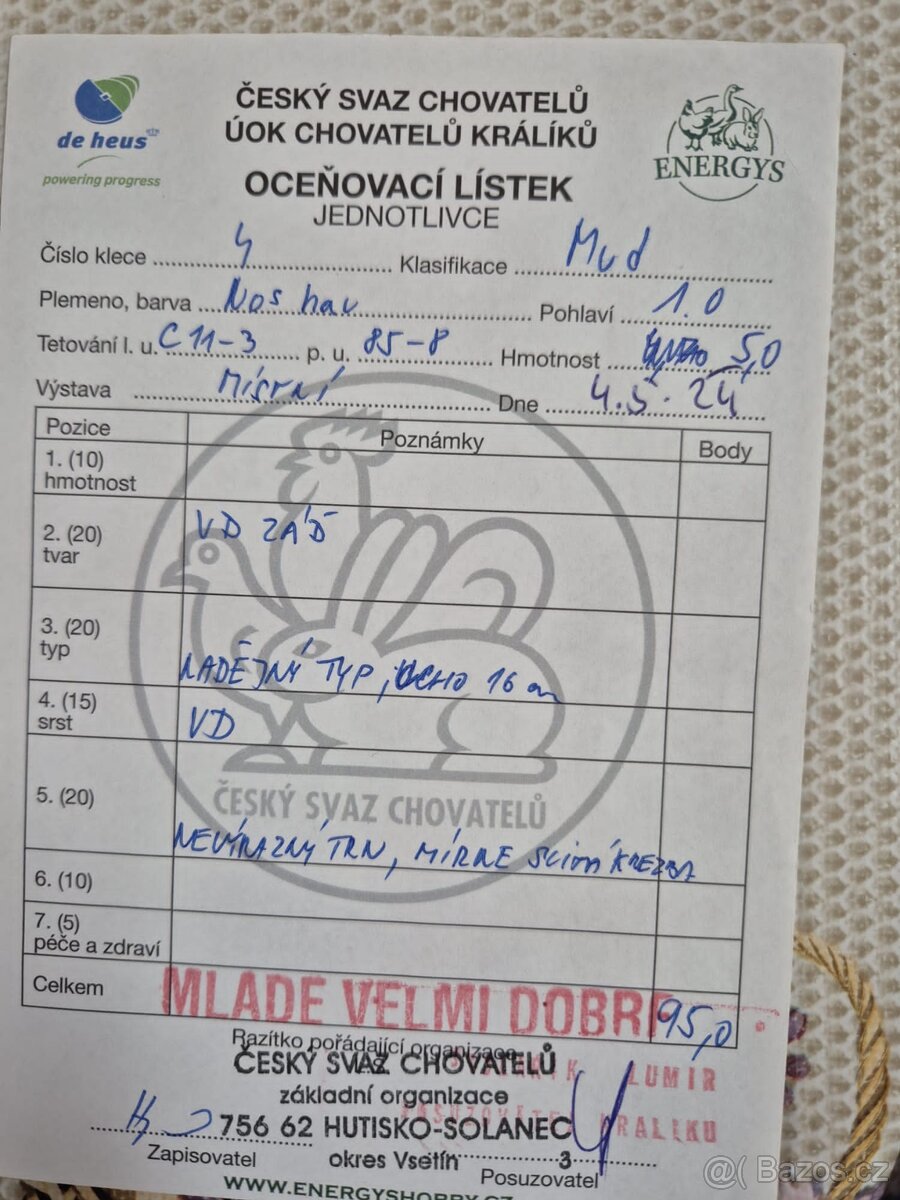 de heus
powering progress
ČESKÝ SVAZ CHOVATELŮ
ÚOK CHOVATELŮ KRÁLÍKŮ
ENERGYS
OCEŇOVACÍ LÍSTEK
JEDNOTLIVCE
Číslo klece 4 Klasifikace Mvd
Plemeno, barva Nos hav Pohlaví 1.0
Tetování l. u. C11-3 p. u. 85-8 Hmotnost 5,0
Výstava Místní Dne 4.5.24
Pozice Poznámky Body
1. (10)
hmotnost
2. (20) VD ZÁĎ
tvar
3. (20)
typ NADĚJNÝ TYP, UCHO 16 cm
4. (15)
srst VD
5. (20)
ČESKÝ SVAZ CHOVATELŮ
NEVÝRAZNÝ TRN, MÍRNE
6. (10)
7. (5)
péče a zdraví
Celkem MLADE VELMI DOBRE 95,0
Razítko pořádající organizace
ČESKÝ SVAZ CHOVATELŮ
LUMIR
základní organizace
KRALIKU
756 62 HUTISKO-SOLANEC
Zapisovatel okres Vsetín 3 Posuzovatel
WWW.ENERGYSHOBBY.CZ
@( Bazos.cz